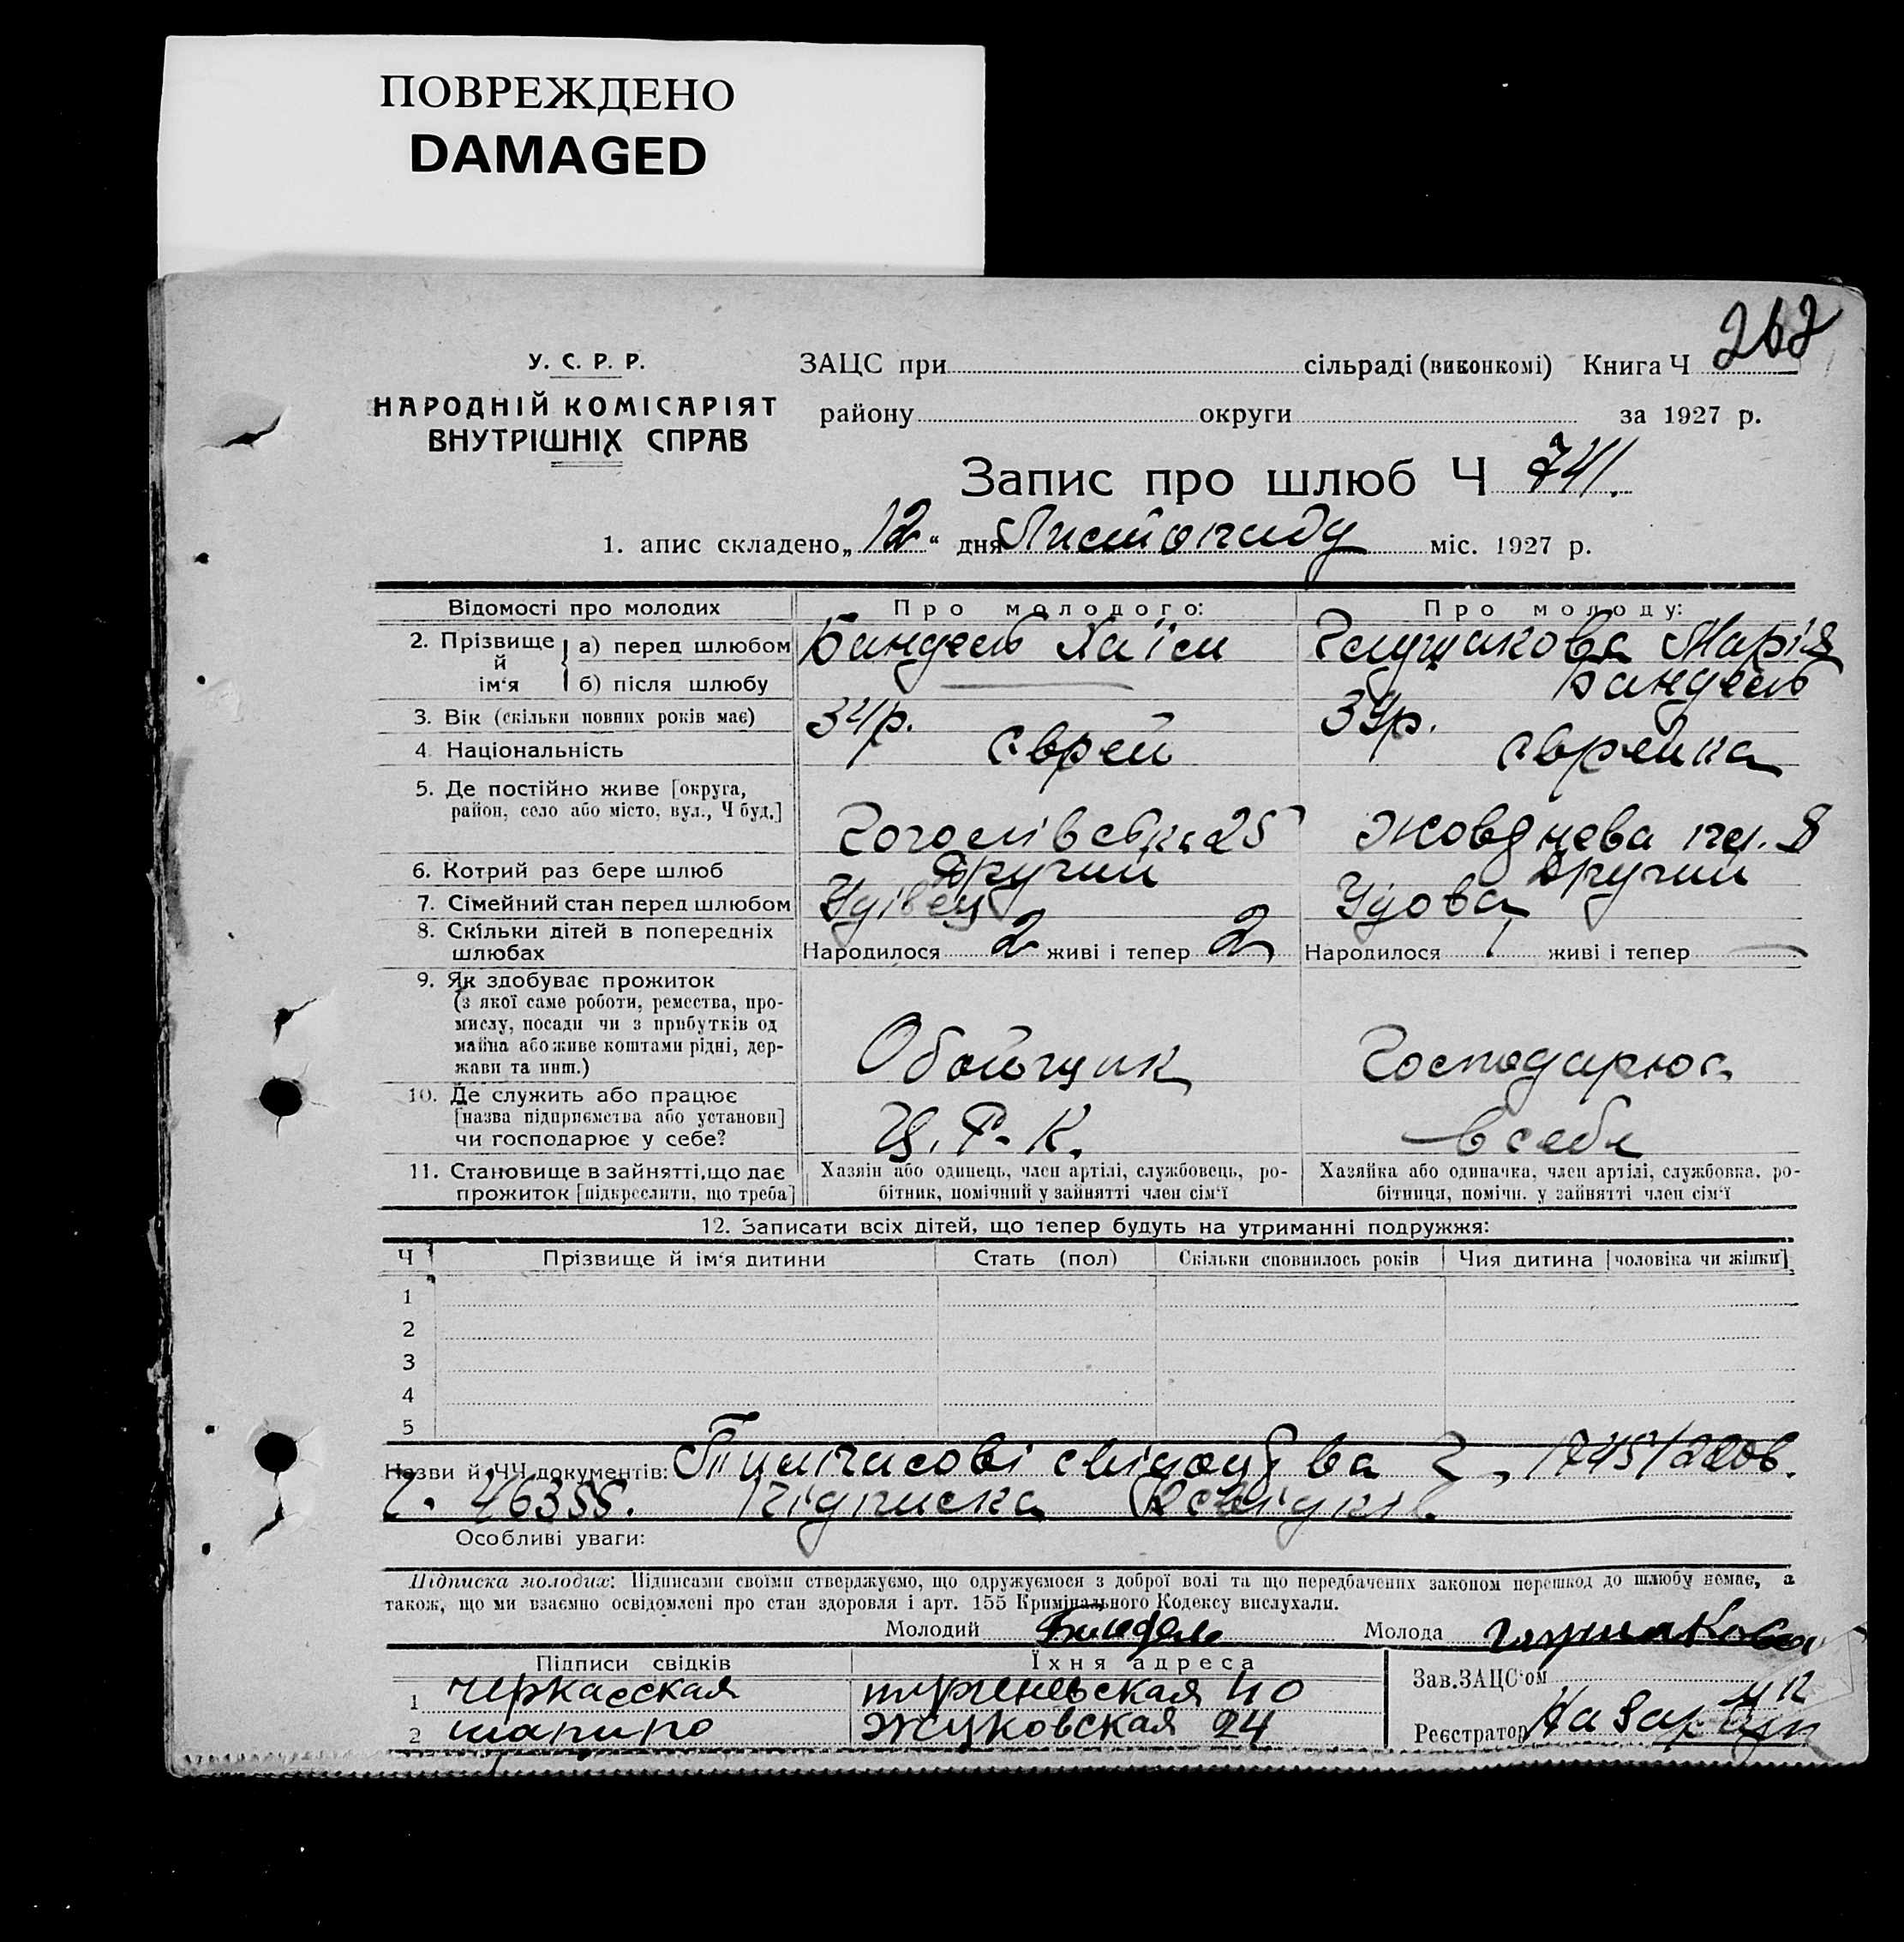 ПОВРЕЖДЕНО
DAMAGED
262
У. С. Р. Р.
НАРОДНІЙ КОМІСАРІЯТ
ВНУТРІШНІХ СПРАВ
ЗАЦС при сільраді (виконкомі) Книга Ч
району округи за 1927 р.
Запис про шлюб Ч 741.
1. апис складено „12“ дня Листопаду міс. 1927 р.
Відомості про молодих Про молодого: Про молоду:
2. Прізвище й ім‘я а) перед шлюбом Бандель Хаїм Глушакова Марія
б) після шлюбу — Бандель
3. Вік (скільки повних років має) 34р. 39р.
4. Національність єврей єврейка
5. Де постійно живе [округа,
район, село або місто, вул., Ч буд.] Гоголівська 25 Жовтнева пл. 8
6. Котрий раз бере шлюб Другий Другий
7. Сімейний стан перед шлюбом Удівець Удова
8. Скільки дітей в попередніх
шлюбах Народилося 2 живі і тепер 2 Народилося 1 живі і тепер —
9. Як здобуває прожиток
(з якої саме роботи, ремества, про-
мислу, посади чи з прибутків од
майна або живе коштами рідні, дер-
жави та инш.) Обойщик Господарює
10. Де служить або працює
[назва підприємства або установи]
чи господарює у себе? Р. К. в себе
11. Становище в зайнятті, що дає
прожиток [підкреслити, що треба]
Хазяїн або одинець, член артілі, службовець, ро-
бітник, помічний у зайнятті член сім‘ї
Хазяйка або одиначка, член артілі, службовка, ро-
бітниця, помічн. у зайнятті член сім‘ї
12. Записати всіх дітей, що тепер будуть на утриманні подружжя:
Ч Прізвище й ім‘я дитини Стать (пол) Скільки сповнилось років Чия дитина [чоловіка чи жінки]
1
2
3
4
5
Назви й ЧЧ документів: Тимчасові свідоцтва Ч, 1745/
Ч. 46355. Підписка свідків.
Особливі уваги:
Підписка молодих: Підписами своїми стверджуємо, що одружуємося з доброї волі та що передбачених законом перешкод до шлюбу немає, а
також, що ми взаємно освідомлені про стан здоровля і арт. 155 Кримінального Кодексу вислухали.
Молодий Бандель Молода Глушакова
Підписи свідків Їхня адреса Зав. ЗАЦС‘ом
1 черкасская тургеневская 40
2 шапиро жуковская 24 Реєстратор